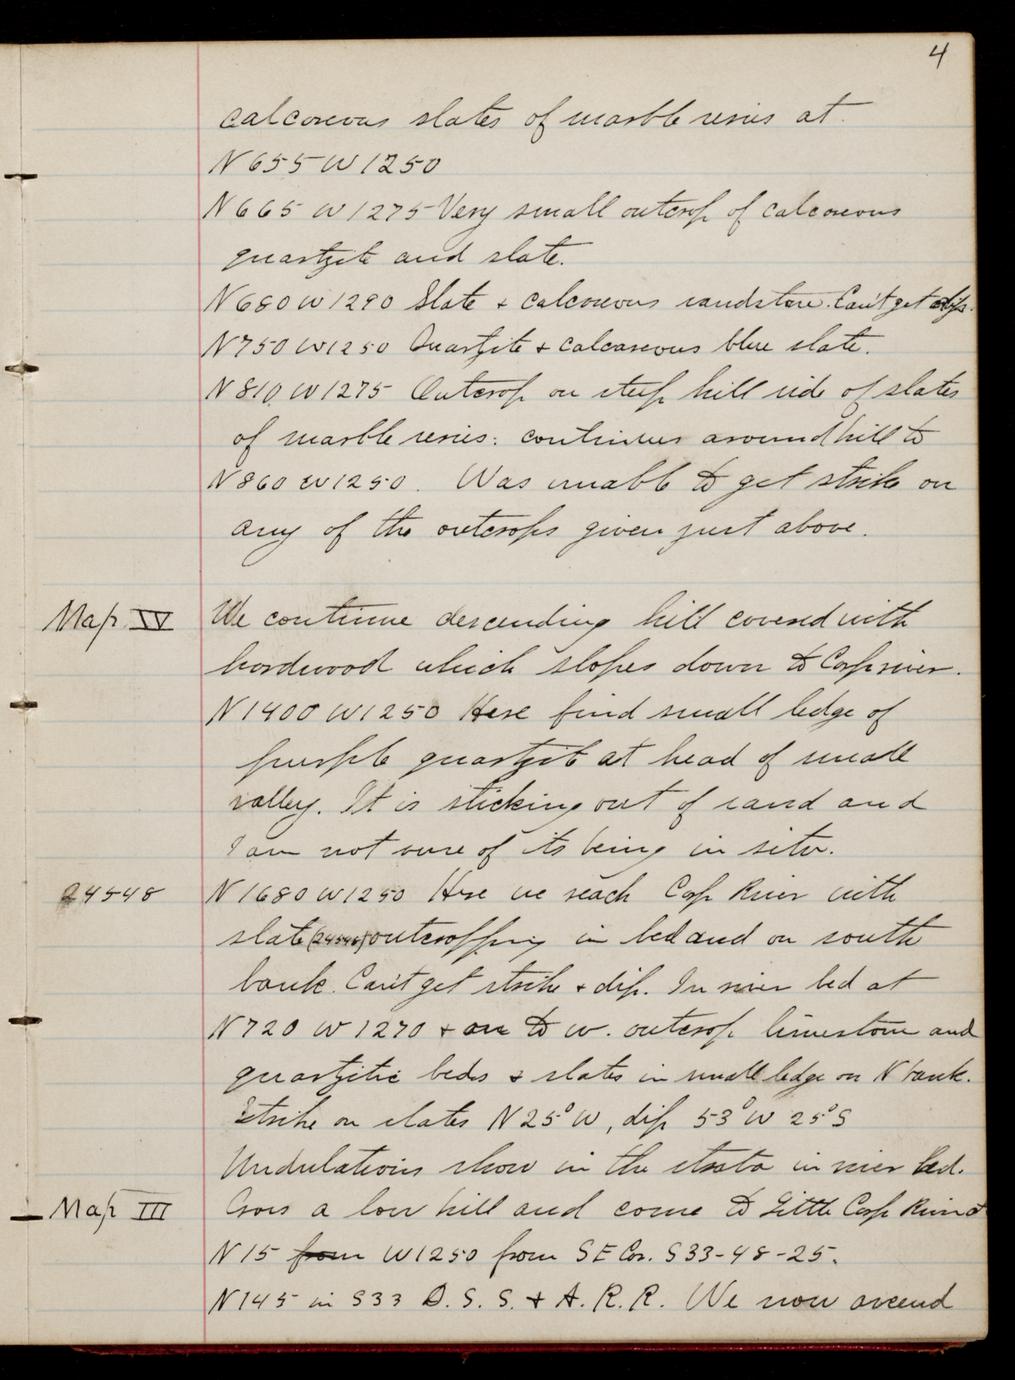 4
calcareous slates of marble series at
N655 W1250
N665 W1275 Very small outcrop of calcareous
quartzite and slate.
N680 W1290 Slate + calcareous sandstone. Can't get dip.
N750 W1250 Quartzite + calcareous blue slate.
N810 W1275 Outcrop on steep hill side of slates
of marble series: continues around hill to
N860 W1250. Was unable to get strike on
any of the outcrops given just above.
Map IV We continue descending hill covered with
hardwood which slopes down to Carp river.
N1400 W1250 Here find small ledge of
purple quartzite at head of small
valley. It is sticking out of sand and
I am not sure of its being in situ.
24548 N1680 W1250 Here we reach Carp River with
slate (24548) outcropping in bed and on south
bank. Can't get strike + dip. In river bed at
N720 W1270 + on to W. outcrop limestone and
quartzitic beds & slates in small ledge on N bank.
Strike on slates N25°W, dip 53° W 25° S
Undulations show in the strata in river bed.
Map III Cross a low hill and come to Little Carp River at
N15 from W1250 from SE Cor. S33-48-25.
N145 in S33 D. S. S. & A. R. R. We now ascend